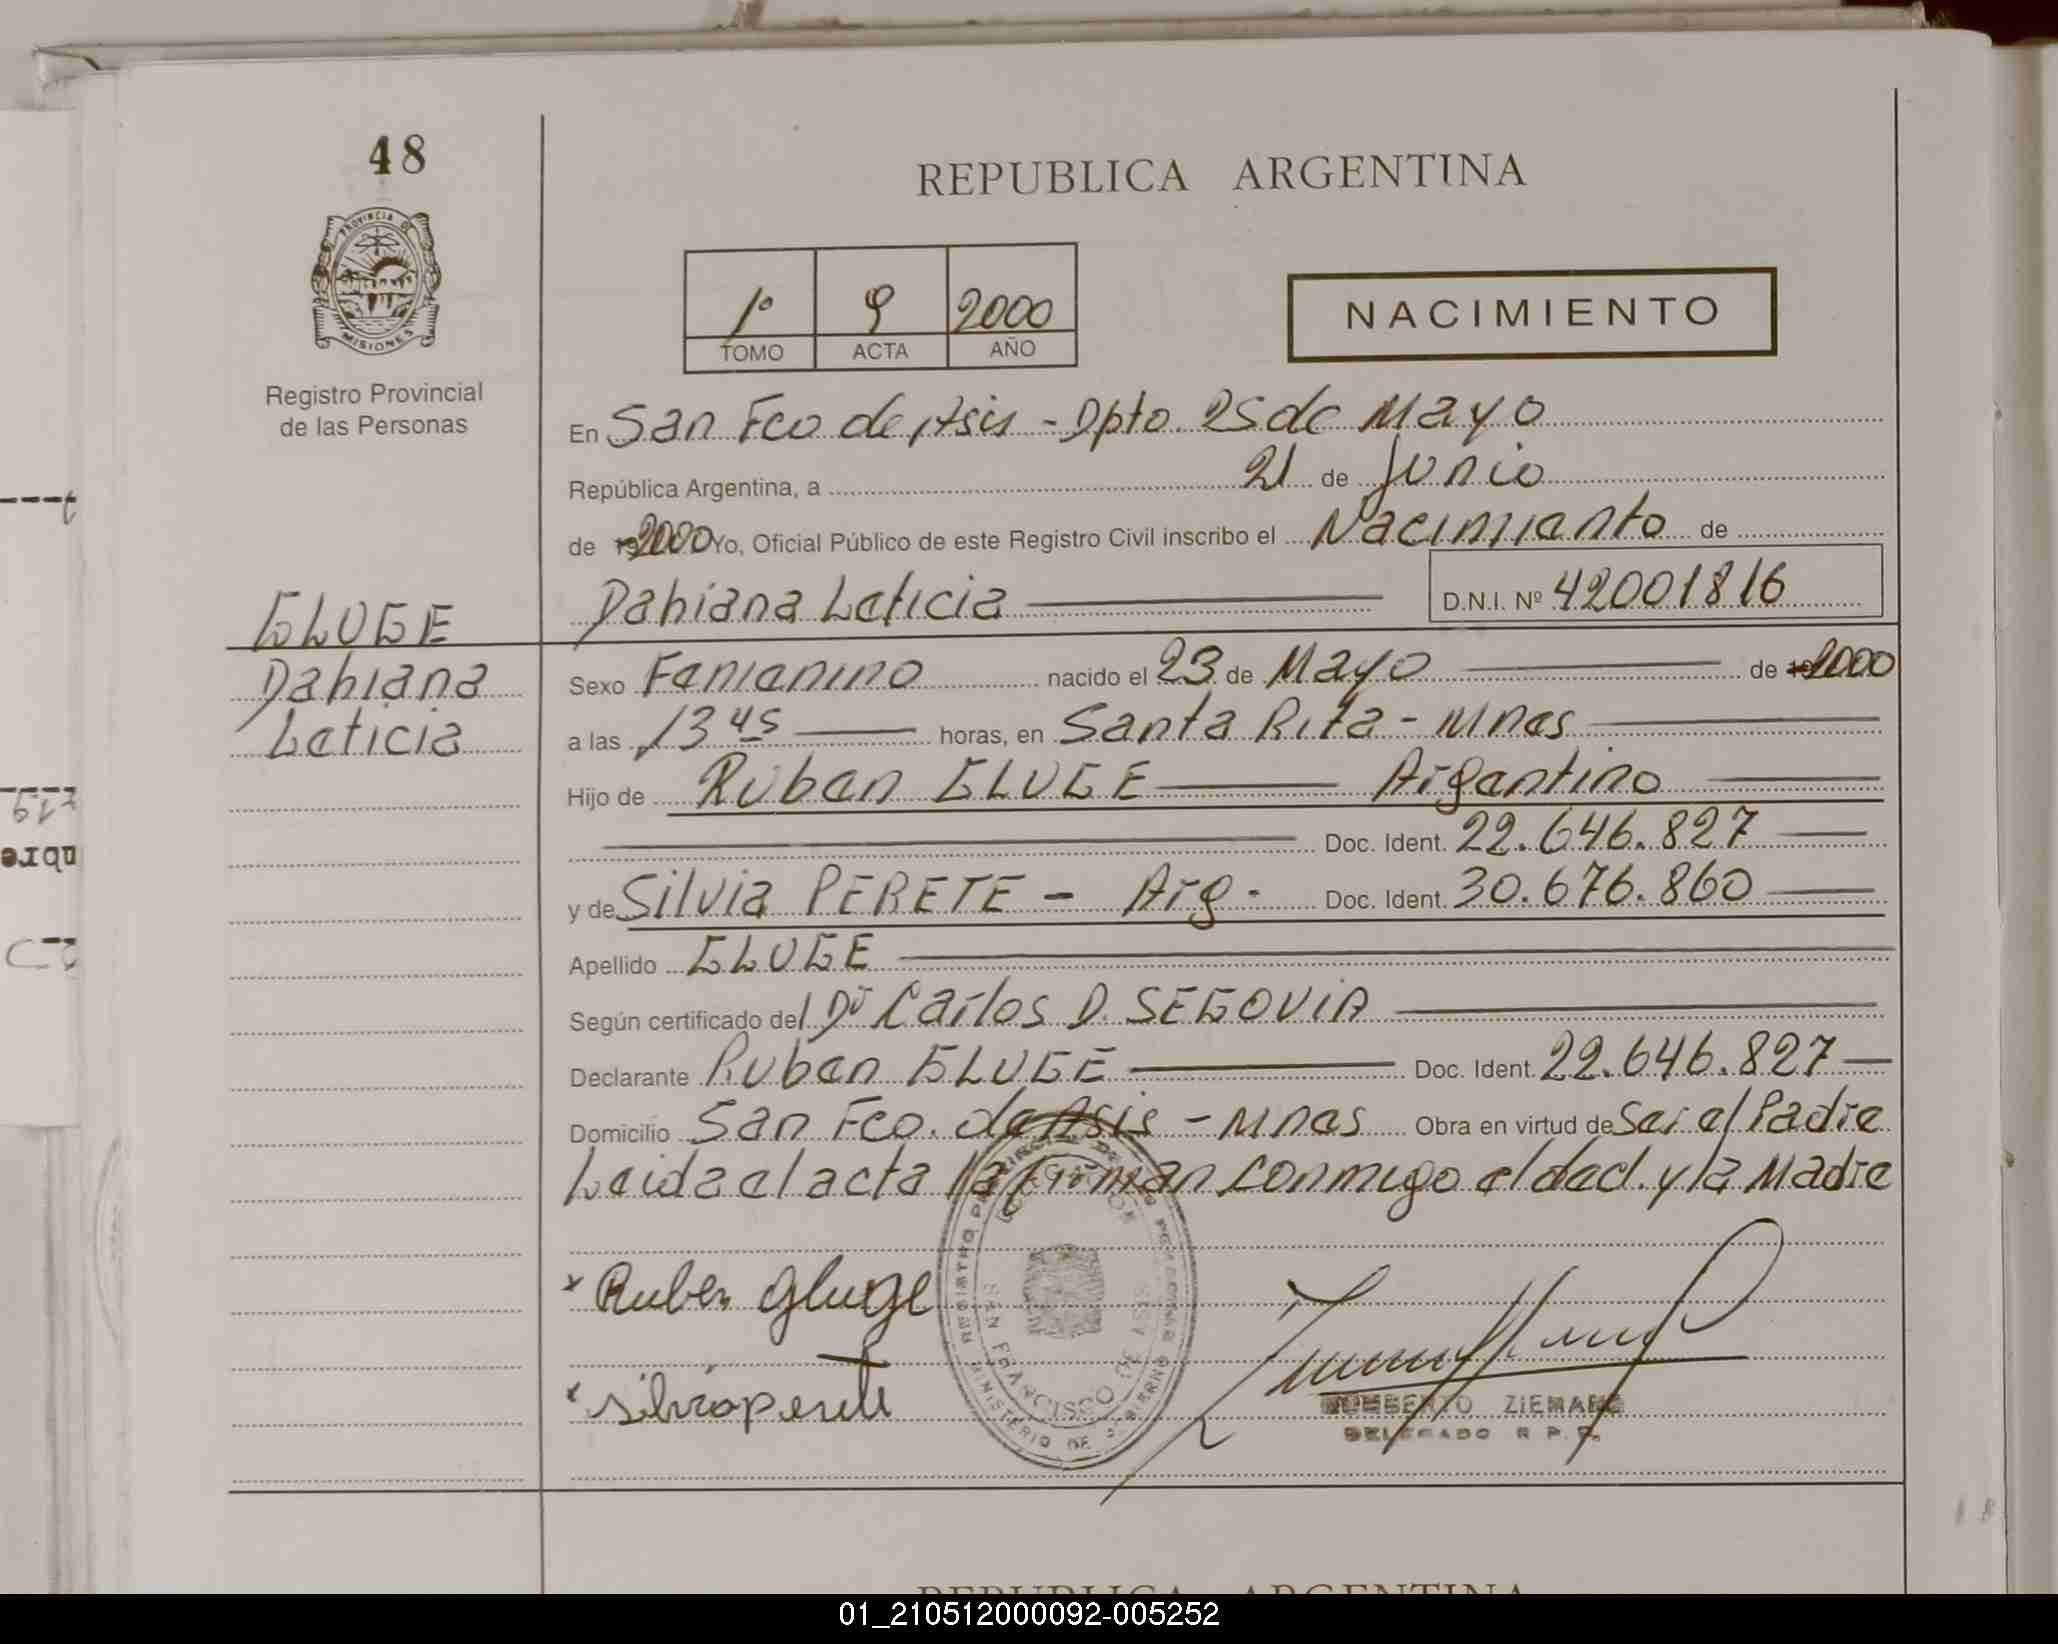 48
PROVINCIA DE
MISIONES
Registro Provincial
de las Personas
REPUBLICA ARGENTINA
1º 9 2000
TOMO ACTA AÑO
NACIMIENTO
En San Fco de Asis - Dpto. 25 de Mayo
República Argentina, a 21 de Junio
de 2000 Yo, Oficial Público de este Registro Civil inscribo el Nacimiento de
Dahiana Leticia D.N.I. Nº 42001816
GLUGE
Dahiana
Leticia
Sexo Femenino nacido el 23 de Mayo de 2000
a las 13 45 horas, en Santa Rita - Mnes
Hijo de Ruben GLUGE Argentino
Doc. Ident. 22.646.827
y de Silvia PERETE - Arg. Doc. Ident. 30.676.860
Apellido GLUGE
Según certificado del Dr Carlos D. SEGOVIA
Declarante Ruben GLUGE Doc. Ident. 22.646.827
Domicilio San Fco. de Asis - Mnes Obra en virtud de Ser el Padre
Leida el acta la firman conmigo el decl. y la Madre
x Ruben Gluge
x Silvia perete
SAN FRANCISCO DE ASIS
MINISTERIO DE GOBIERNO
HUMBERTO ZIEMANN
DELEGADO R. P. P.
REPUBLICA ARGENTINA
01_210512000092-005252